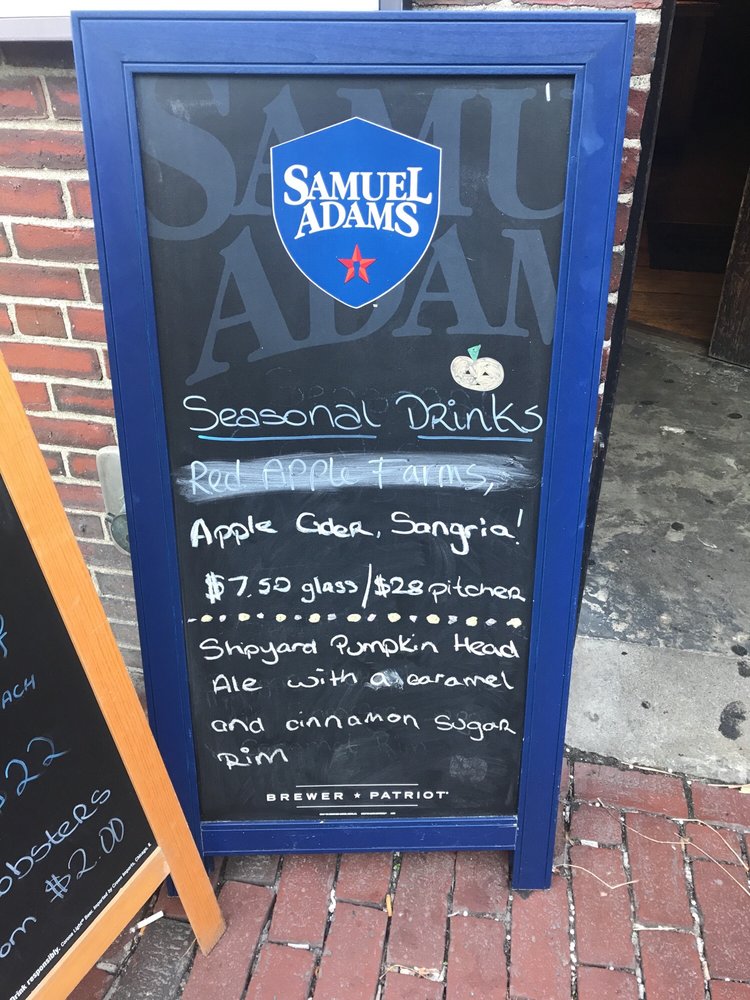 SAMUEL
ADAMS
SAMUEL
ADAMS
Seasonal Drinks
Red Apple Farms,
Apple Cider, Sangria!
$7.50 glass/$28 pitcher
Shipyard Pumpkin Head
Ale with a caramel
and cinnamon sugar
Rim
BREWER ★ PATRIOT
ACH
$22
obsters
om $2.00
Drink responsibly.